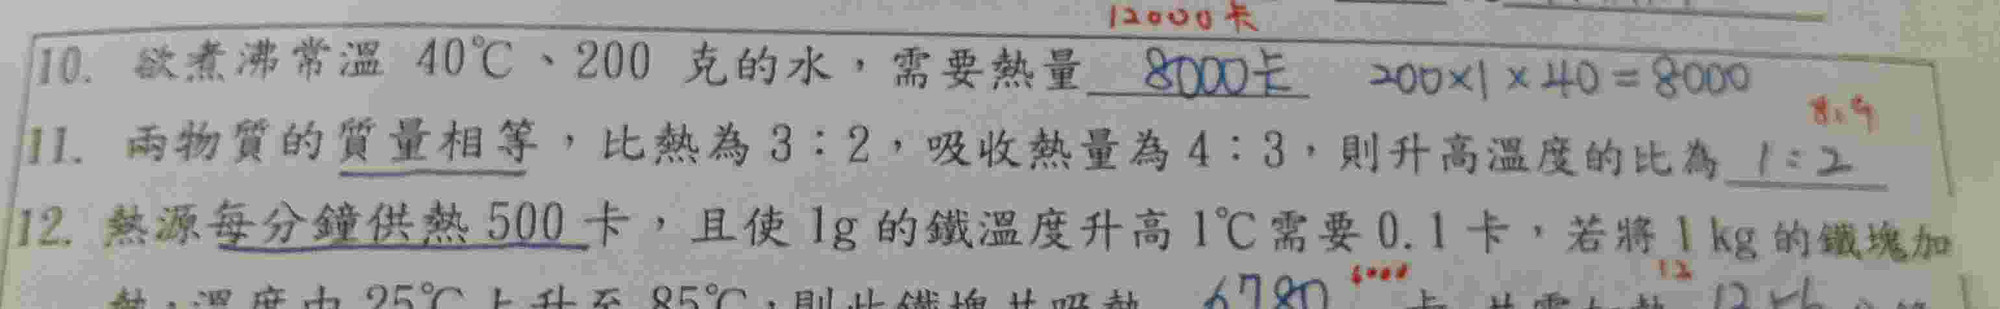 12000卡
10. 欲煮沸常溫 40℃、200 克的水，需要熱量 8000卡 200×1×40=8000
8:9
11. 兩物質的質量相等，比熱為 3：2，吸收熱量為 4：3，則升高溫度的比為 1:2
12. 熱源每分鐘供熱 500 卡，且使 1g 的鐵溫度升高 1℃需要 0.1 卡，若將 1 kg 的鐵塊加
6000 12
熱，溫度由 25℃上升至 85℃，則此鐵塊共吸熱 6780 卡